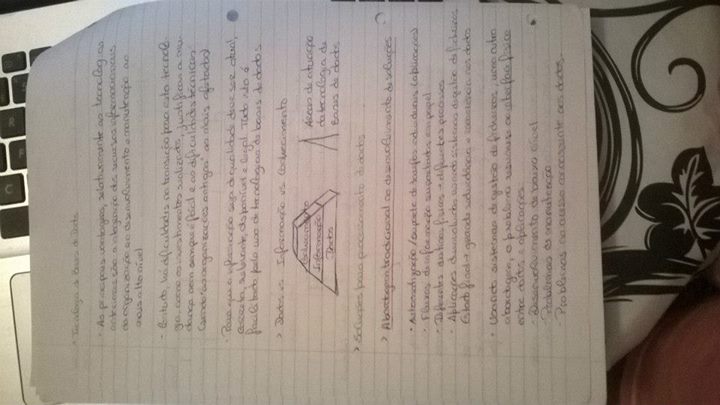 • Tecnologia de Bases de Dados
• As principais vantagens, relativamente às tecnologias
anteriores são a integração dos recursos informacionais
da organização e o desenvolvimento e manutenção ao
mais alto nível
• Contudo, há dificuldades na transição para esta tecnolo-
gia, como os investimentos realizados,
nem sempre é fácil e as dificuldades técnicas
(sendo as organizações antigas as mais afetadas)
Para que a informação seja de qualidade deve ser atual,
correcta, relevante, disponível e legível. Tudo isto é
facilitado pelo uso de tecnologias de bases de dados
> Dados vs Informação vs Conhecimento
Conhecimento
Informação
Dados
Áreas de atuação
da tecnologia de
Bases de Dados
> Soluções para processamento de dados
> Abordagem tradicional no desenvolvimento de soluções
• Automatização/suporte de tarefas individuais (aplicações)
• Fluxos de informação suportados em papel
• Diferentes suportes físicos → diferentes processos
• Aplicações desenvolvidas usando sistemas de gestão de ficheiros
Estado final → grande redundância e inconsistência nos dados
• Usando sistemas de gestão de ficheiros, numa outra
abordagem, os problemas resumem-se interface física
entre dados e aplicações
- Desenvolvimento de baixo nível
- Problemas na manutenção
- Problemas no acesso concorrente aos dados